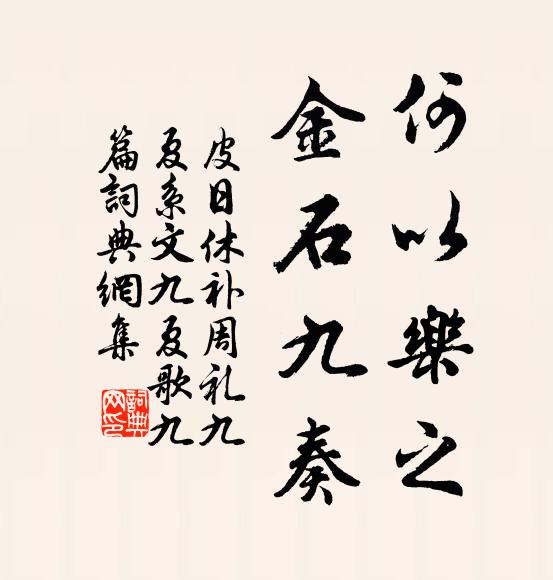 何以樂之
金石九奏
皮日休补周礼九
夏系文九夏歌九
篇詞典網集
詞典
网印